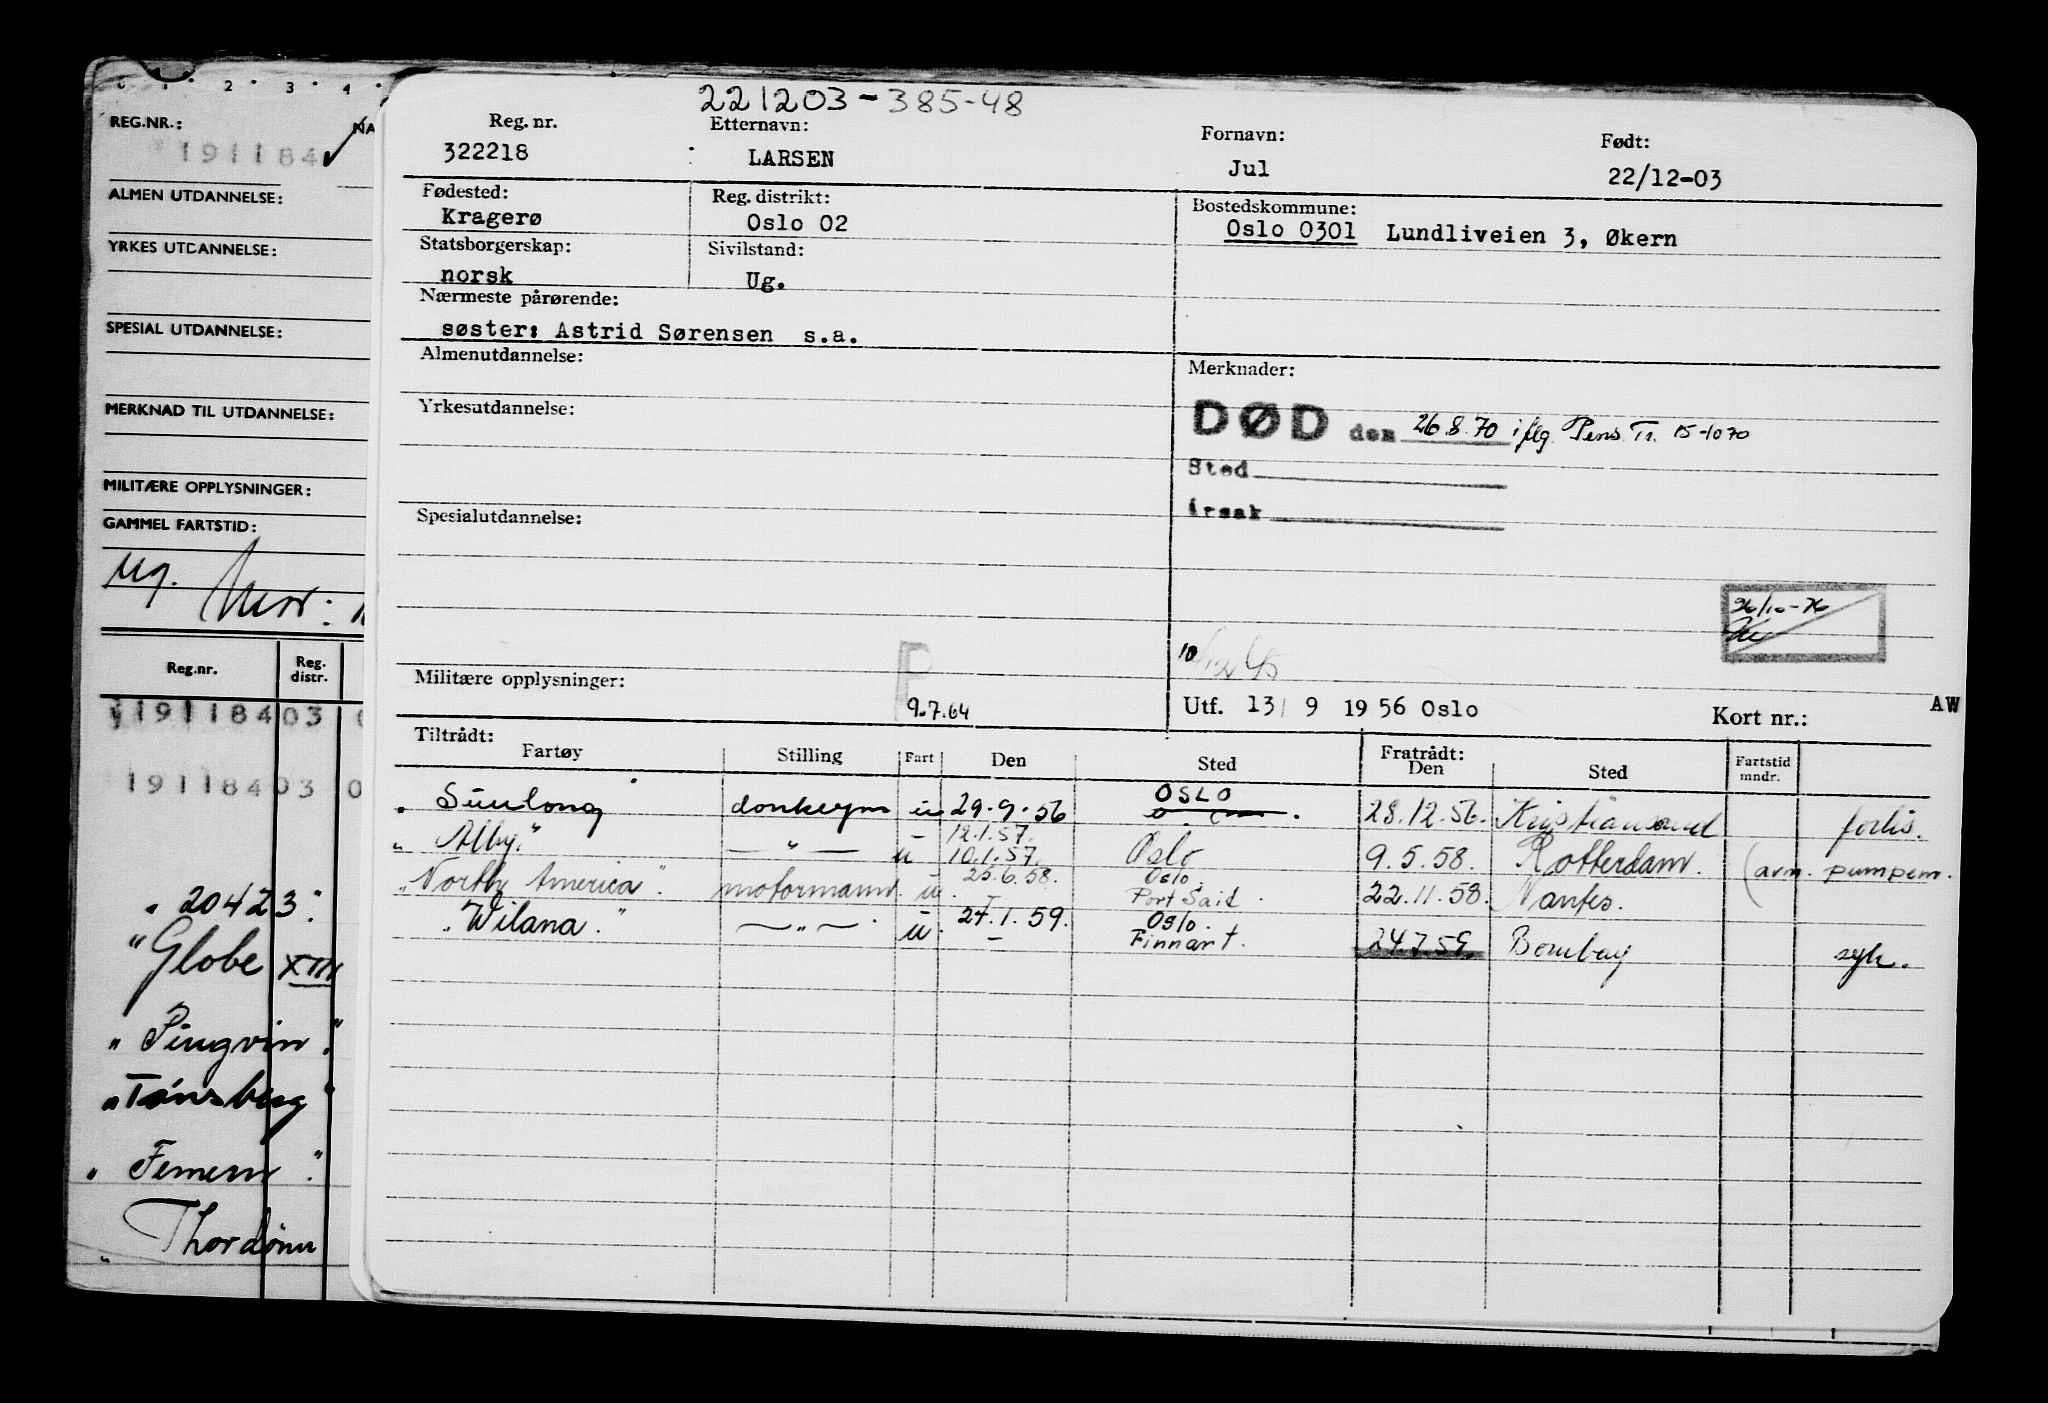 C 1 2 3 4
REG.NR.:
NA
191184
ALMEN UTDANNELSE:
YRKES UTDANNELSE:
SPESIAL UTDANNELSE:
MERKNAD TIL UTDANNELSE:
MILITÆRE OPPLYSNINGER:
GAMMEL FARTSTID:
ug.
Reg.nr. Reg. distr.
19118403
19118403 0
"20423"
"Globe XIII
"Pingvin"
"Tønsberg"
"Femern"
"Thordønn
221203-385-48
Reg. nr. Etternavn: Fornavn: Født:
322218 LARSEN Jul 22/12-03
Fødested: Reg. distrikt: Bostedskommune:
Kragerø Oslo 02 Oslo 0301 Lundliveien 3, Økern
Statsborgerskap: Sivilstand:
norsk Ug.
Nærmeste pårørende:
søster: Astrid Sørensen s.a.
Almenutdannelse: Merknader:
Yrkesutdannelse: DØD den 26.8.70 iflg. Pens. Tr. 15-1070
Sted
Spesialutdannelse: årsak
26/10-76
Militære opplysninger: P
9.7.64 Utf. 13/ 9 1956 Oslo Kort nr.: AW
Tiltrådt: Fratrådt:
Fartøy Stilling Fart Den Sted Den Sted Fartstid mndr.
" Sunlong donkeym u 29.9.56 OSLO 28.12.56. Kristiansand forlis.
"Alby" — " — - 12.1.57.
u 10.1.57. Oslo 9.5.58. Rotterdam. (avm. pumpem.
"North America". motormann - 25.6.58. Oslo.
u. Port Said. 22.11.58. Nantes.
"Wilana". — " — - 27.1.59. Oslo.
u. - Finnart. 24.7.59. Bombay syk.